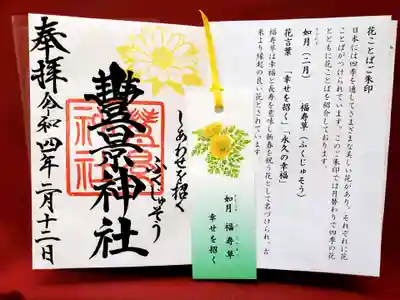 花ことばご朱印
日本には四季を通してさまざまな美しい花があり、それぞれに花
ことばがつけられています。このご朱印では月替わりで四季の花
とともに花ことばを紹介しております。
きさらぎ
如月（二月）　福寿草（ふくじゅそう）
花言葉　「幸せを招く」「永久の幸福」
福寿草は幸福と長寿を意味し新春を祝う花として名づけられ、古
来より縁起の良い花とされています。
しあわせを招く
ふくじゅそう
豐景神社
奉拝
令和四年二月十二日
如月　福寿草
幸せを招く